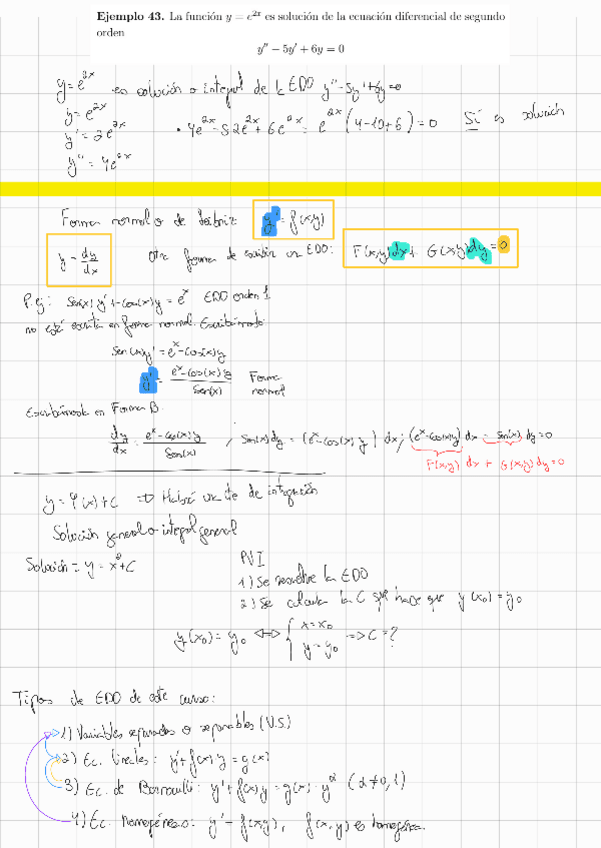 Ejemplo 43. La función y = e^{2x} es solución de la ecuación diferencial de segundo
orden
y'' − 5y' + 6y = 0
y = e^{2x} es solución o integral de la EDO y'' - 5y' + 6y = 0
y = e^{2x}
y' = 2e^{2x} • 4e^{2x} - 5 2e^{2x} + 6e^{2x} = e^{2x} (4 - 10 + 6) = 0 Sí es solución
y'' = 4e^{2x}
Forma normal o de Leibniz: y' = f(x,y)
y' = dy/dx Otra forma de escribir una EDO: F(x,y)dx + G(x,y)dy = 0
P.ej: Sen(x) y' + cos(x) y = e^x EDO orden 1
no está escrita en forma normal. Escribámosla:
Sen(x)y' = e^x - cos(x)y
y' = (e^x - cos(x)y)/Sen(x) Forma normal
Escribámosla en Forma B.
dy/dx = (e^x - cos(x)y)/Sen(x) ; Sen(x)dy = (e^x - cos(x)y) dx ; (e^x - cos(x)y) dx - sen(x) dy = 0
F(x,y) dx + G(x,y) dy = 0
y = φ(x) + C => Habrá una cte de integración
Solución general o integral general
Solución = y = x² + C
PVI
1) Se resuelve la EDO
2) Se calcula la C que hace que y(x₀) = y₀
y(x₀) = y₀ <=> { x = x₀ y = y₀ => C = ?
Tipos de EDO de este curso:
1) Variables separadas o separables (V.S.)
2) Ec. lineales: y' + f(x) y = g(x)
3) Ec. de Bernoulli: y' + f(x) y = g(x) · y^α (α ≠ 0, 1)
4) Ec. homogéneas: y' = f(x,y), f(x,y) es homogénea.